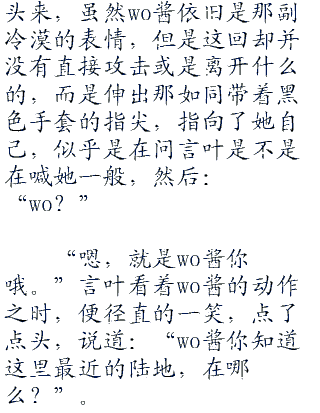 头来，虽然wo酱依旧是那副
冷漠的表情，但是这回却并
没有直接攻击或是离开什么
的，而是伸出那如同带着黑
色手套的指尖，指向了她自
己，似乎是在问言叶是不是
在喊她一般，然后：
“wo？”
“嗯，就是wo酱你
哦。”言叶看着wo酱的动作
之时，便径直的一笑，点了
点头，说道：“wo酱你知道
这里最近的陆地，在哪
么？”。